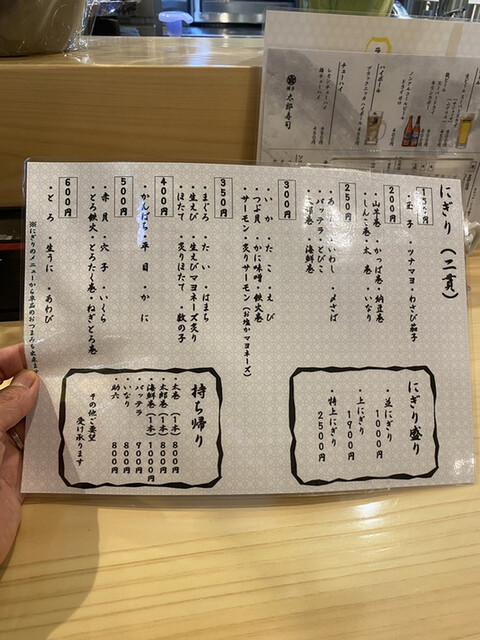 にぎり(二貫)
150円
・玉子・ツナマヨ・わさび茄子
200円
・山芋巻・かっぱ巻・納豆巻
・しんこ巻・太巻・いなり
250円
・いわし・〆さば
・バッテラ・とびこ
・海鮮巻
300円
・いか・たこ・えび
・つぶ貝・かに味噌・鉄火巻
・サーモン・炙りサーモン(お塩かマヨネーズ)
350円
・まぐろ・たい・はまち
・生えび・生えびマヨネーズ炙り
・ほたて・炙りほたて・数の子
400円
・かんぱち・平目・かに
500円
・赤貝・穴子・いくら
・とろ鉄火・とろたく巻・ねぎとろ巻
600円
・とろ・生うに・あわび
※にぎりのメニューから単品のおつまみも出来ます
にぎり盛り
・並にぎり 1000円
・上にぎり 1900円
・特上にぎり 2500円
持ち帰り
・太巻(1本) 800円
・太郎巻(1本) 800円
・海鮮巻(1本) 1000円
・バッテラ 900円
・いなり 800円
・助六 800円
その他ご要望
受け承ります
太郎寿司
チューハイ
レモンチューハイ
ハイボール
ノンアルコールビール